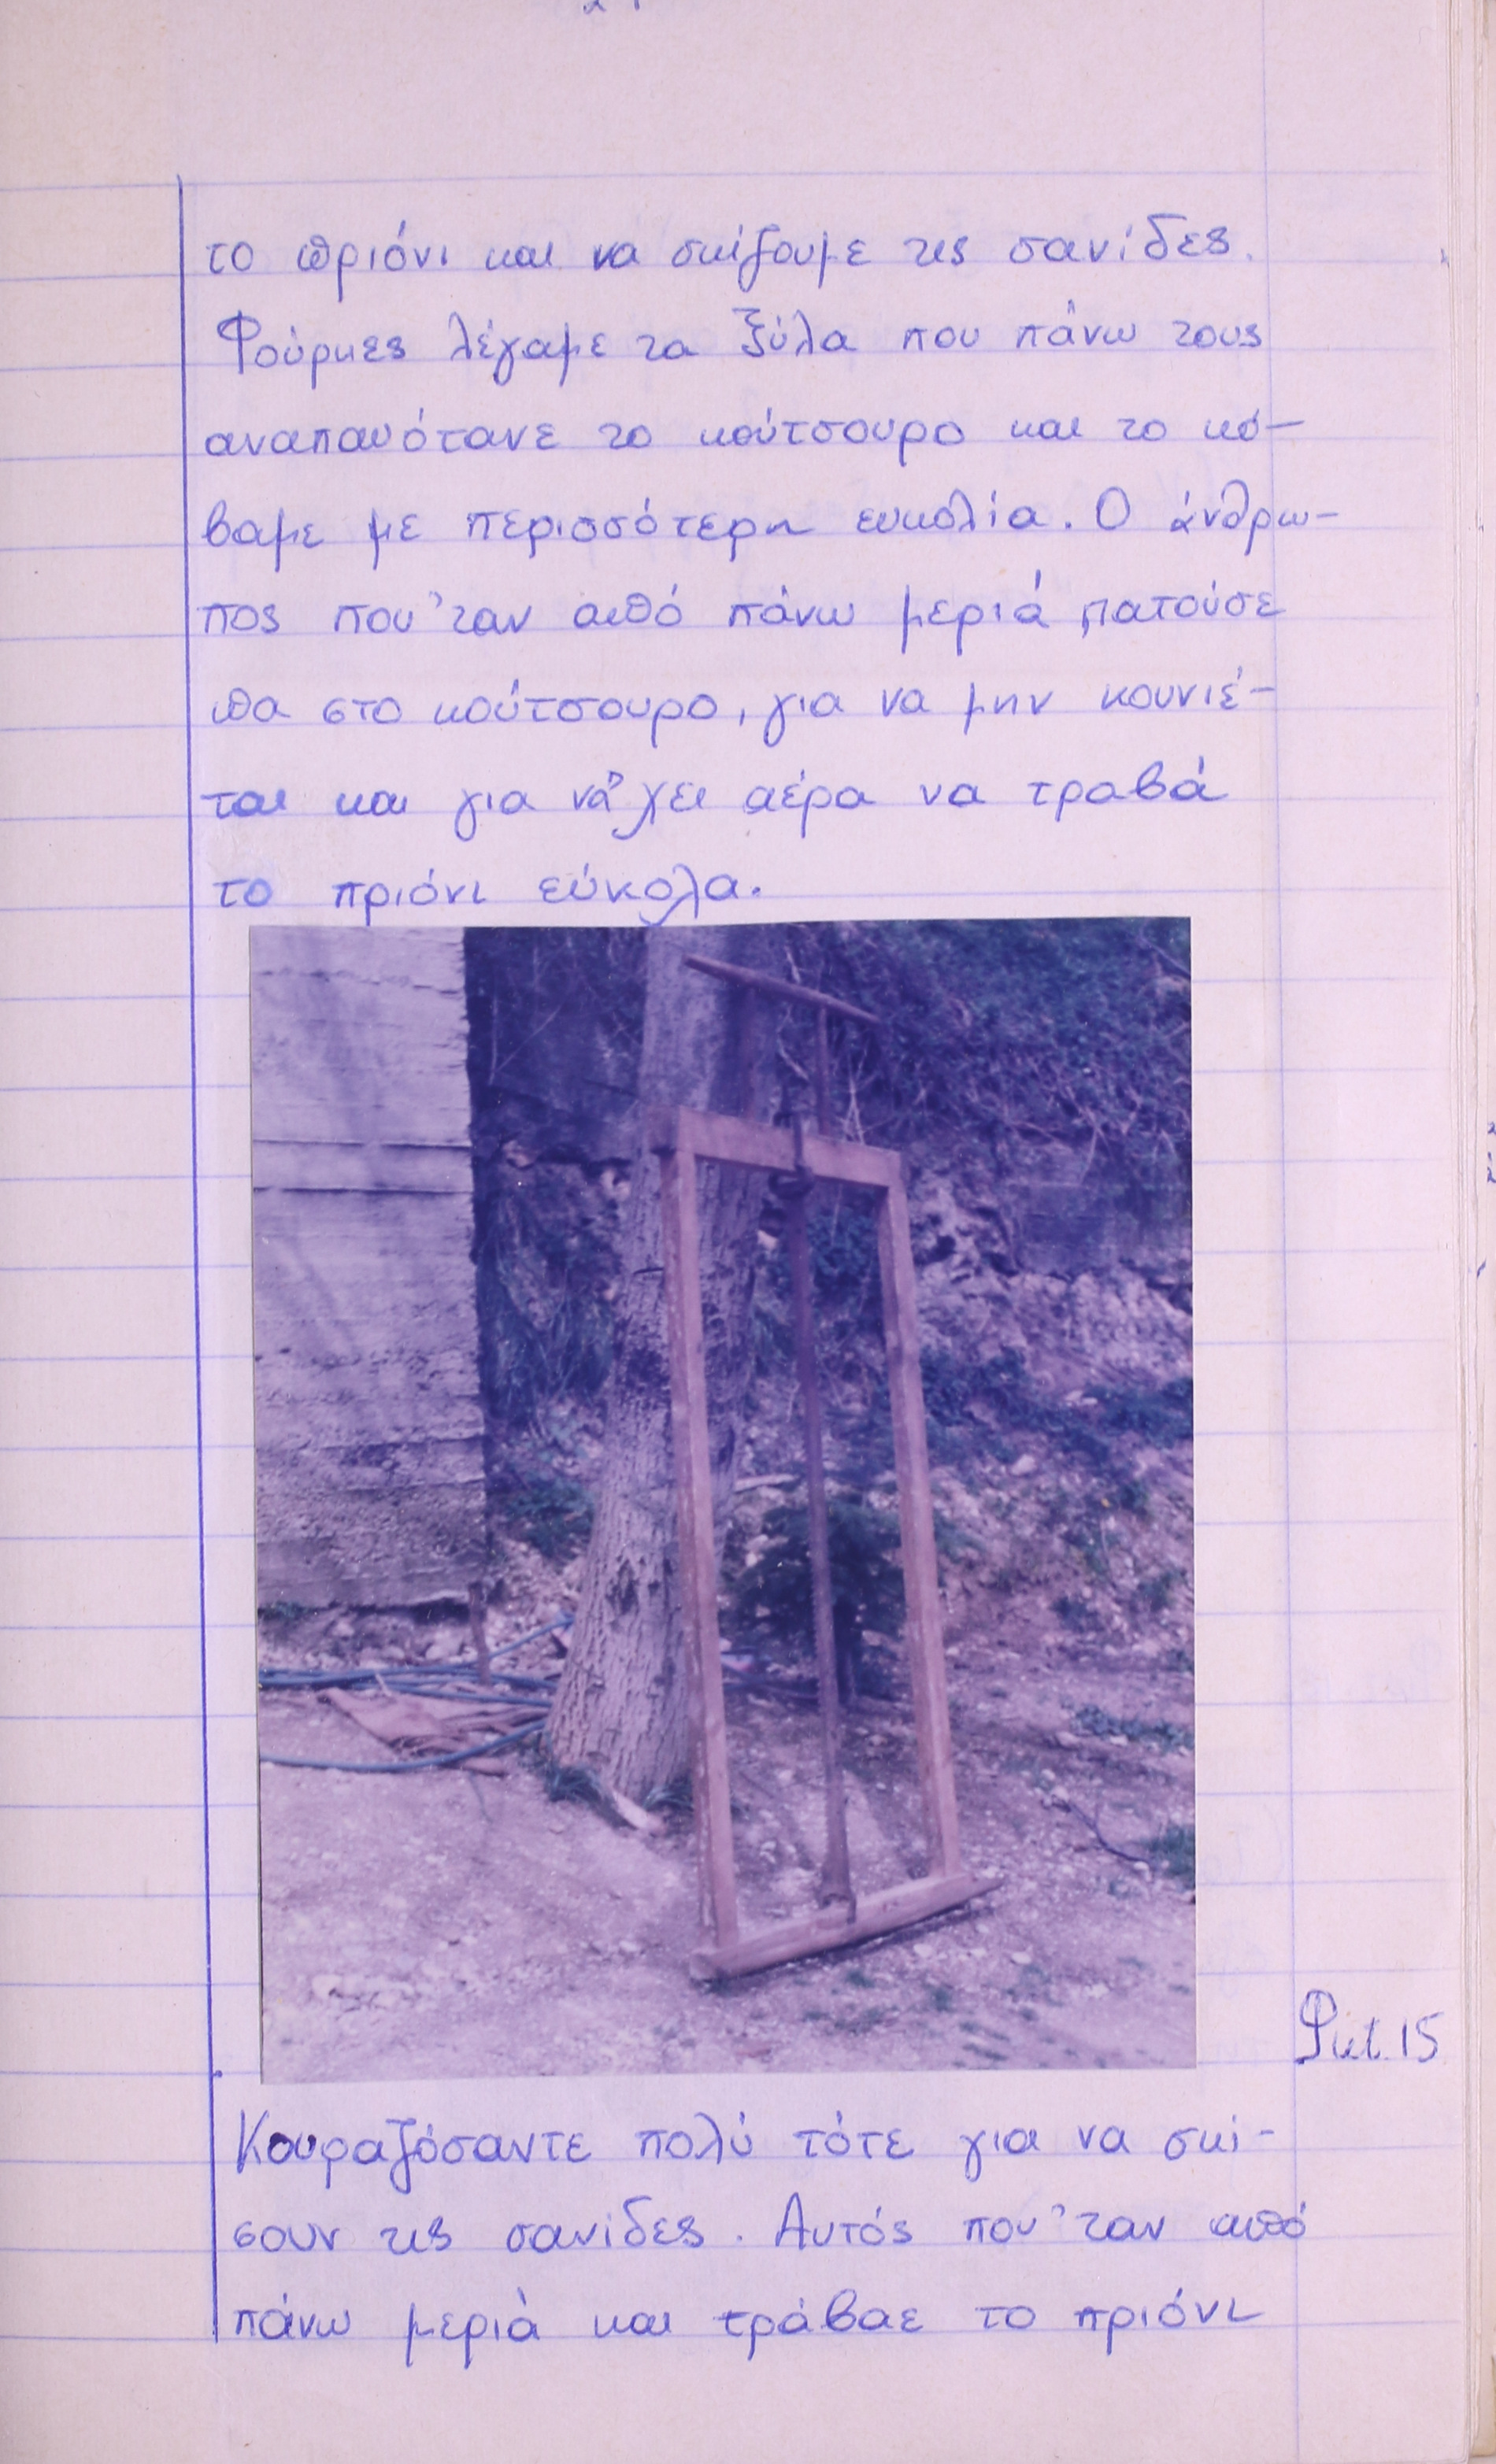 το πριόνι και να σκίζουμε τις σανίδες.
Φούρκες λέγαμε τα ξύλα που πάνω τους
αναπαυότανε το κούτσουρο και το κό-
βαμε με περισσότερη ευκολία. Ο άνθρω-
πος που 'ταν από πάνω μεριά πατούσε
πα στο κούτσουρο, για να μην κουνιέ-
ται και για νά 'χει αέρα να τραβά
το πριόνι εύκολα.
Φωτ. 15
Κουραζόσαντε πολύ τότε για να σκί-
σουν τις σανίδες. Αυτός που 'ταν από
πάνω μεριά και τράβαε το πριόνι